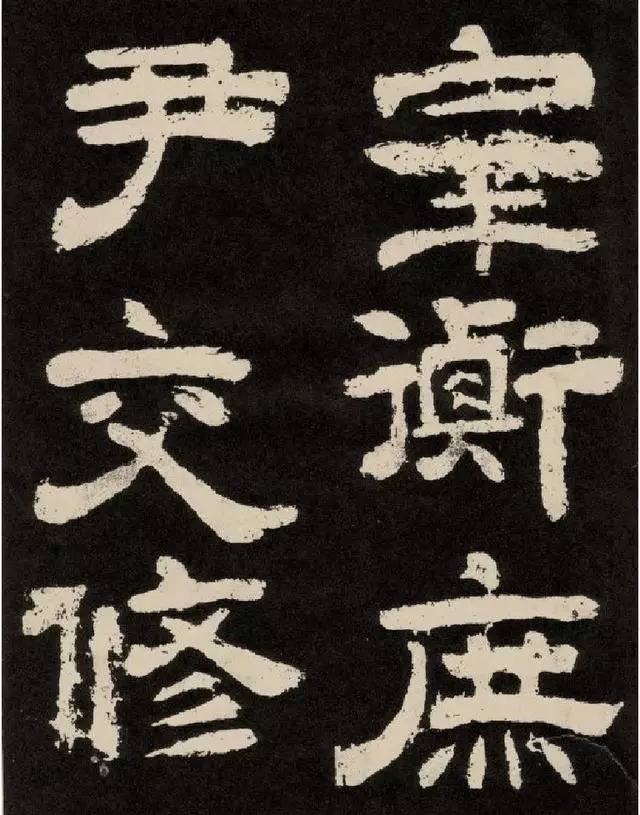 宰衡庶
尹交修